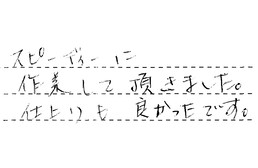 スピーディーに
作業して頂きました。
仕上りも良かったです。